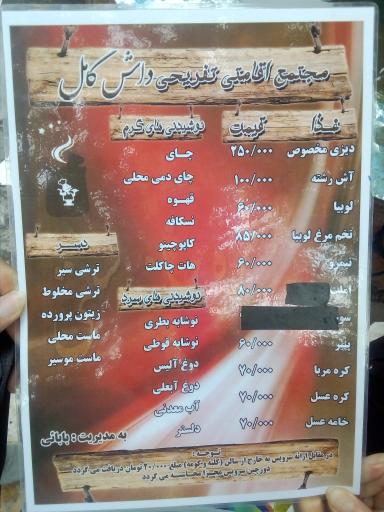 مجتمع اقامتی تفریحی داش کامل
غذا قیمت
دیزی مخصوص ۲۵۰/۰۰۰
آش رشته ۱۰۰/۰۰۰
لوبیا ۶۰/۰۰۰
تخم مرغ لوبیا ۸۵/۰۰۰
نیمرو ۶۰/۰۰۰
املت ۸۰/۰۰۰
سو
پنیر ۶۰/۰۰۰
کره مربا ۷۰/۰۰۰
کره عسل ۷۰/۰۰۰
خامه عسل ۷۰/۰۰۰
نوشیدنی های گرم
چای
چای دمی محلی
قهوه
نسکافه
کاپوچینو
هات چاکلت
نوشیدنی های سرد
نوشابه بطری
نوشابه قوطی
دوغ آلیس
دوغ آبعلی
آب معدنی
دلستر
دسر
ترشی سیر
ترشی مخلوط
زیتون پرورده
ماست محلی
ماست موسیر
به مدیریت : بابائی
توجه :
در مقابل ارائه سرویس به خارج از سالن (کلبه وکومه) مبلغ ۲۰/۰۰۰ تومان دریافت می گردد
دورچین سرویس مجزا محاسبه می گردد